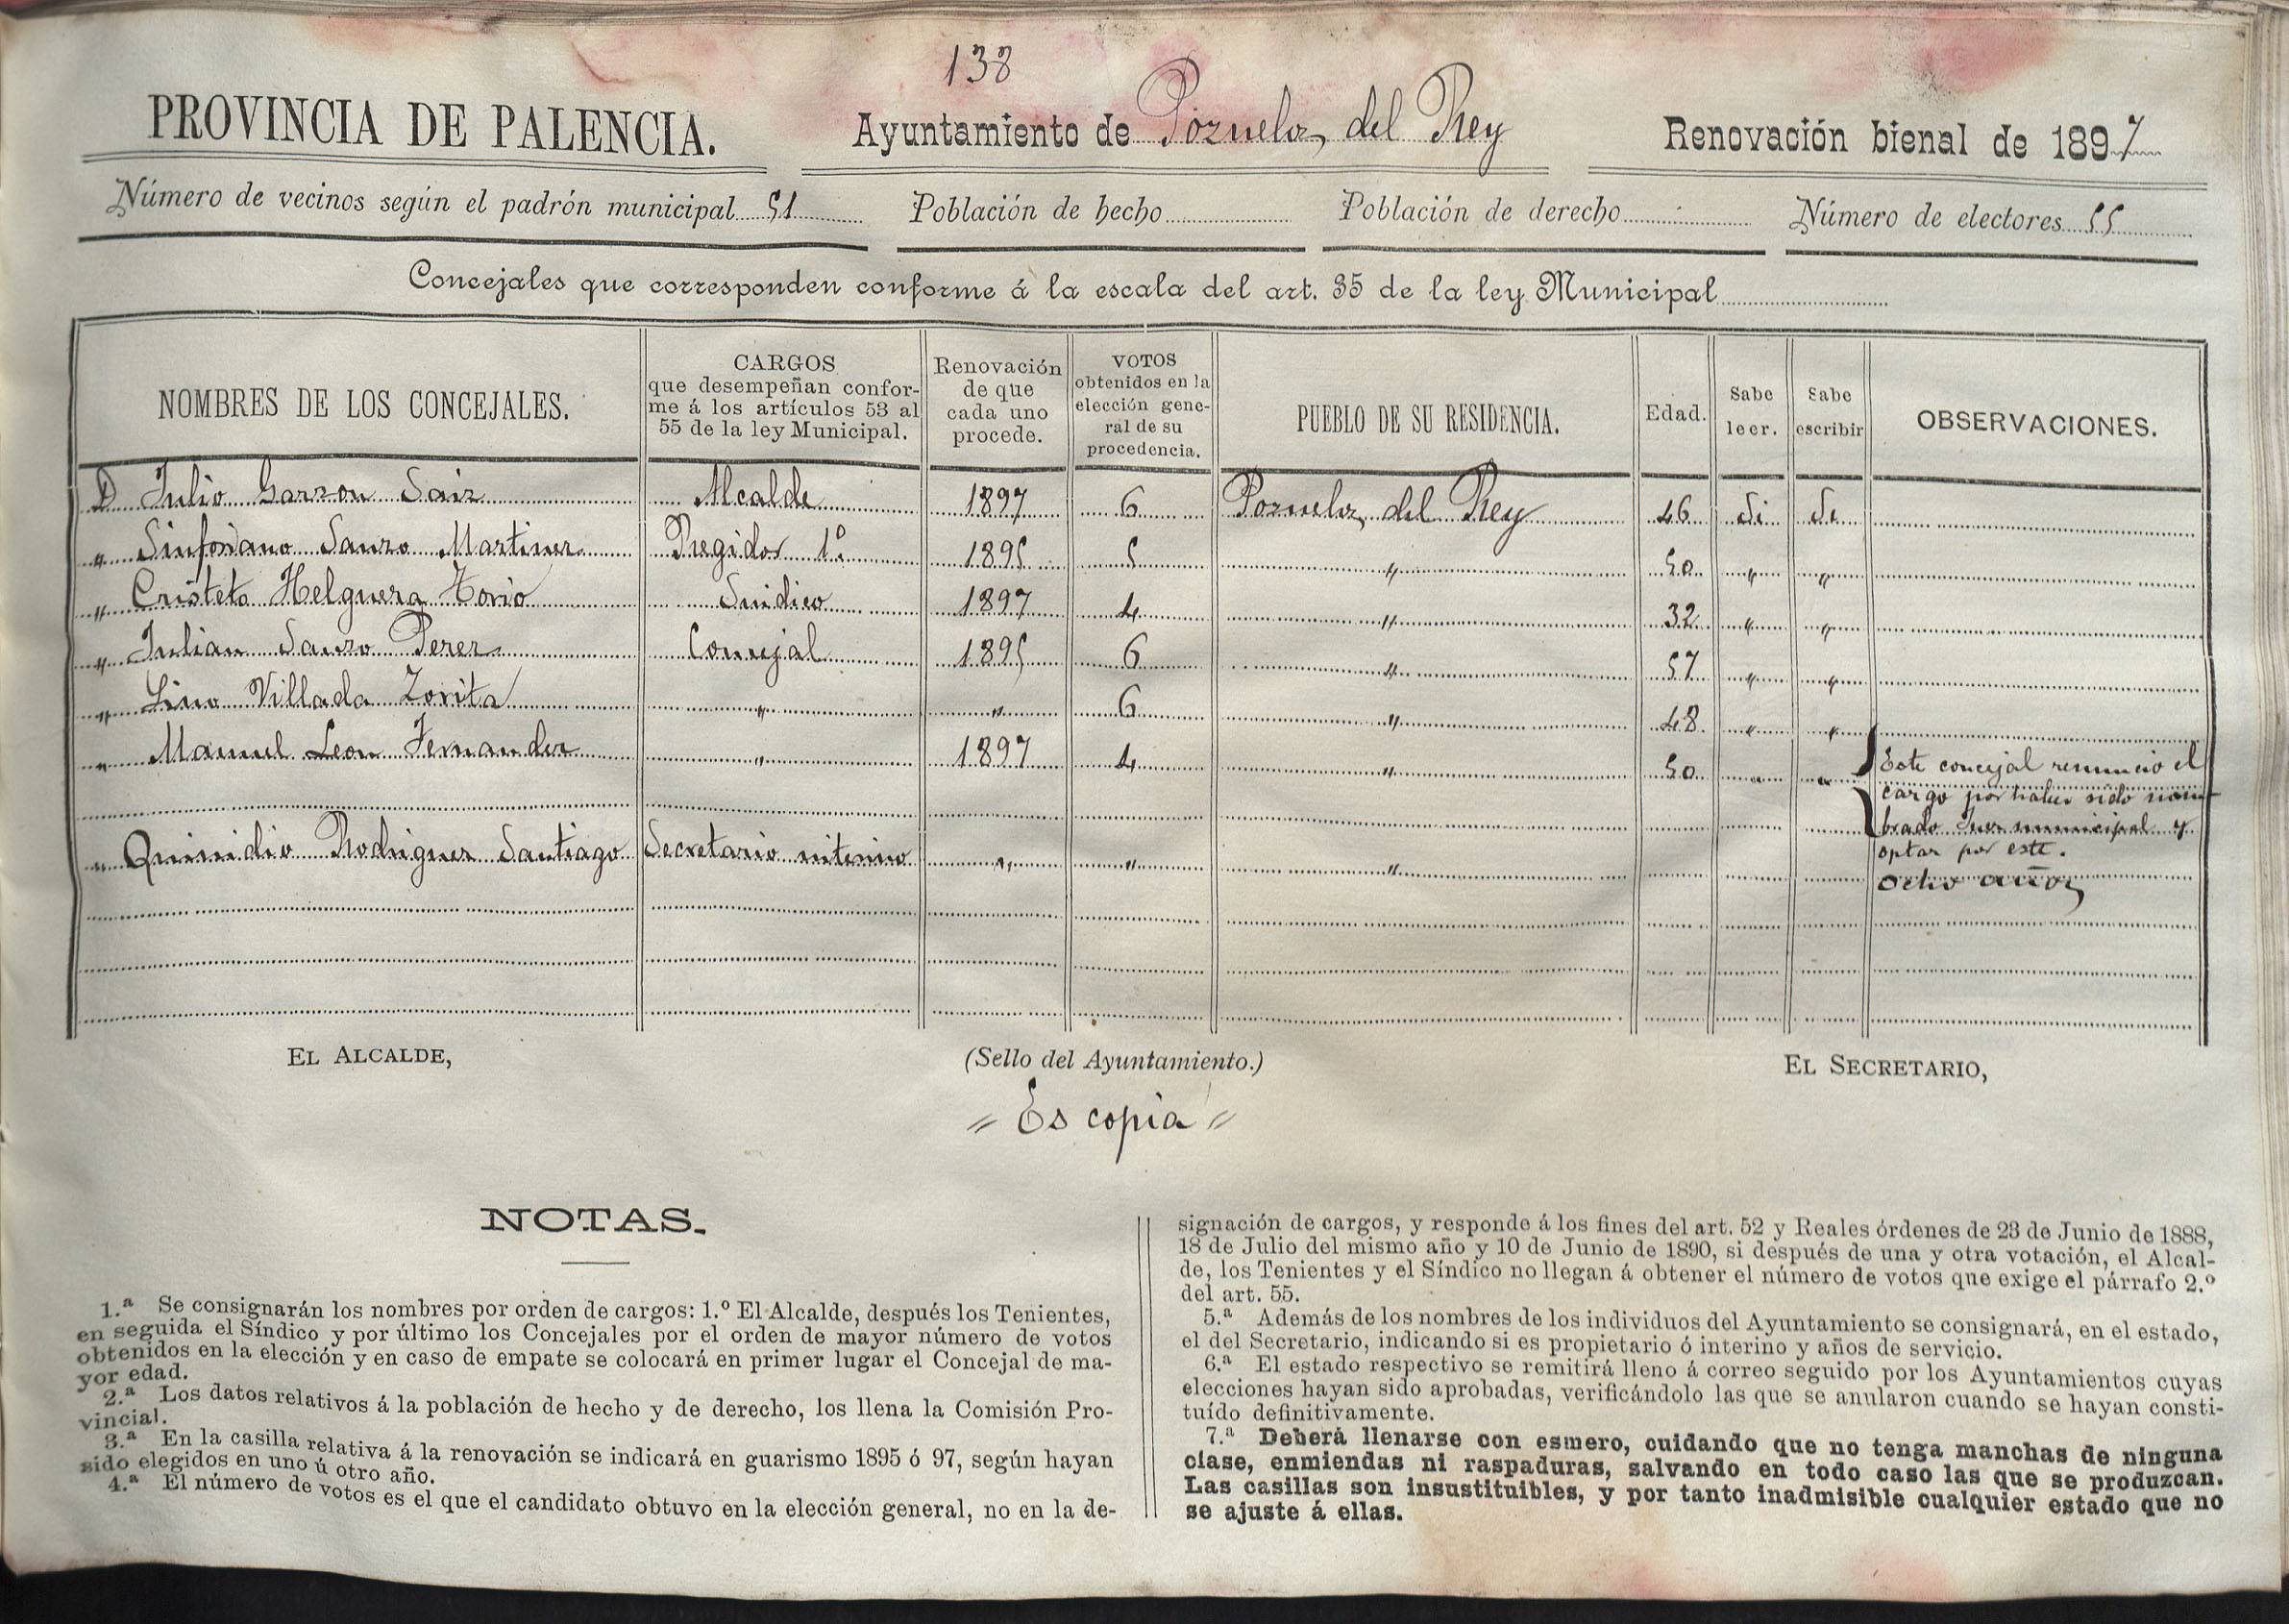 138
PROVINCIA DE PALENCIA. Ayuntamiento de Pozuelos del Rey Renovación bienal de 1897
Número de vecinos según el padrón municipal 51 Población de hecho Población de derecho Número de electores 55
Concejales que corresponden conforme á la escala del art. 35 de la ley Municipal
NOMBRES DE LOS CONCEJALES.
CARGOS
que desempeñan confor-
me á los artículos 53 al
55 de la ley Municipal.
Renovación
de que
cada uno
procede.
VOTOS
obtenidos en la
elección gene-
ral de su
procedencia.
PUEBLO DE SU RESIDENCIA.
Edad.
Sabe
leer.
Sabe
escribir
OBSERVACIONES.
D Julio Garzon Saiz Alcalde 1897 6 Pozuelos del Rey 46 Si Si
" Sinforiano Sanzo Martinez Regidor 1º 1895 5 " 50 " "
" Cristeto Helguera Torio Sindico 1897 4 " 32 " "
" Julian Sanzo Perez Concejal 1895 6 " 57 " "
" Lino Villada Zorita " " 6 " 48 " "
" Manuel Leon Fernandez " 1897 4 " 50 " " Este concejal renuncio el
cargo por haber sido nom-
brado Juez municipal y
optar por este.
" Quinidio Rodriguez Santiago Secretario interino " " " Ocho años
EL ALCALDE, (Sello del Ayuntamiento.) EL SECRETARIO,
" Es copia "
NOTAS.
1.ª Se consignarán los nombres por orden de cargos: 1.º El Alcalde, después los Tenientes,
en seguida el Síndico y por último los Concejales por el orden de mayor número de votos
obtenidos en la elección y en caso de empate se colocará en primer lugar el Concejal de ma-
yor edad.
2.ª Los datos relativos á la población de hecho y de derecho, los llena la Comisión Pro-
vincial.
3.ª En la casilla relativa á la renovación se indicará en guarismo 1895 ó 97, según hayan
sido elegidos en uno ú otro año.
4.ª El número de votos es el que el candidato obtuvo en la elección general, no en la de-
signación de cargos, y responde á los fines del art. 52 y Reales órdenes de 23 de Junio de 1888,
18 de Julio del mismo año y 10 de Junio de 1890, si después de una y otra votación, el Alcal-
de, los Tenientes y el Síndico no llegan á obtener el número de votos que exige el párrafo 2.º
del art. 55.
5.ª Además de los nombres de los individuos del Ayuntamiento se consignará, en el estado,
el del Secretario, indicando si es propietario ó interino y años de servicio.
6.ª El estado respectivo se remitirá lleno á correo seguido por los Ayuntamientos cuyas
elecciones hayan sido aprobadas, verificándolo las que se anularon cuando se hayan consti-
tuído definitivamente.
7.ª Deberá llenarse con esmero, cuidando que no tenga manchas de ninguna
clase, enmiendas ni raspaduras, salvando en todo caso las que se produzcan.
Las casillas son insustituibles, y por tanto inadmisible cualquier estado que no
se ajuste á ellas.